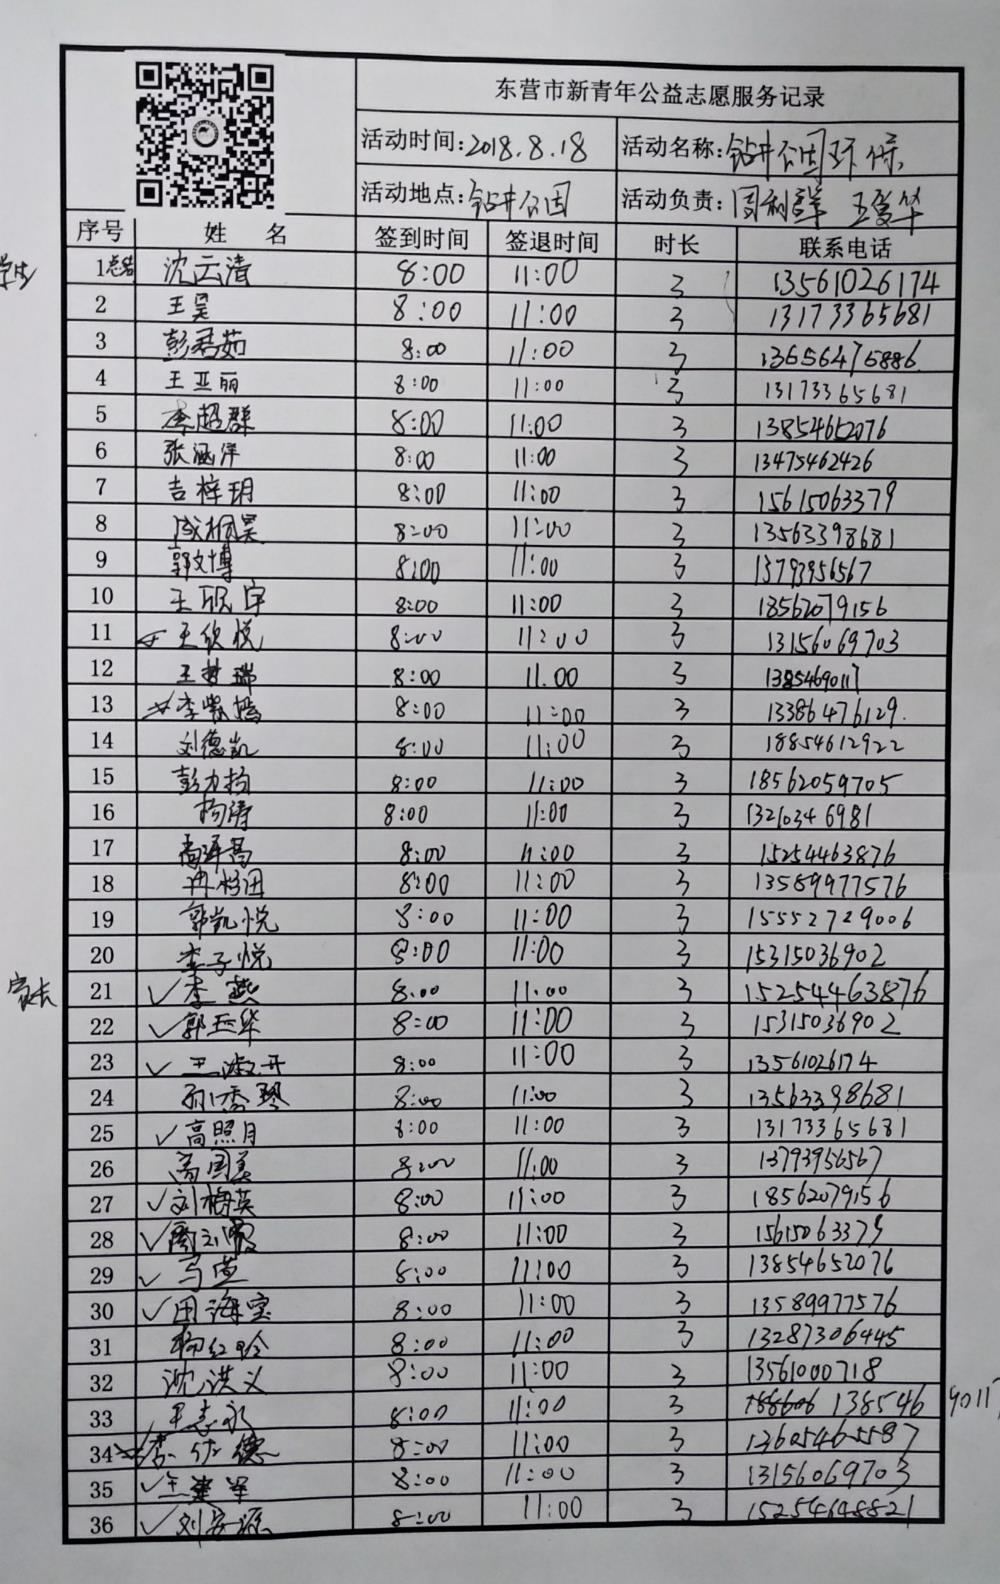 东营市新青年公益志愿服务记录
活动时间:2018.8.18 活动名称:钻井公园环保
活动地点:钻井公园 活动负责:周利群 王爱华
序号 姓 名 签到时间 签退时间 时长 联系电话
学生 1 沈云清 8:00 11:00 3 13561026174
2 王昊 8:00 11:00 3 13173365681
3 彭君茹 8:00 11:00 3 13656475886
4 王亚丽 8:00 11:00 3 13173365681
5 李超群 8:00 11:00 3 13854652076
6 张涵洋 8:00 11:00 3 13475462426
7 吉梓玥 8:00 11:00 3 15615063379
8 成桐昊 8:00 11:00 3 13563398681
9 郭文博 8:00 11:00 3 13793956567
10 8:00 11:00 3 18562079156
11 王欣悦 8:00 11:00 3 13156069703
12 王梦瑞 8:00 11.00 3 13854690117
13 李紫嫣 8:00 11:00 3 13386476129.
14 刘德凯 8:00 11:00 3 18854612922
15 彭力扬 8:00 11:00 3 18562059705
16 杨涛 8:00 11:00 3 13210346981
17 8:00 11:00 3 15254463876
18 8:00 11:00 3 13589977576
19 郭凯悦 8:00 11:00 3 15552729006
20 李子悦 8:00 11:00 3 15315036902
家长 21 ✓李燕 8:00 11:00 3 15254463876
22 ✓郭玉华 8:00 11:00 3 15315036902
23 ✓王淑开 8:00 11:00 3 13561026174
24 孙秀琴 8:00 11:00 3 13563398681
25 ✓高照月 8:00 11:00 3 13173365681
26 8:00 11:00 3 13793956567
27 ✓刘梅英 8:00 11:00 3 18562079156
28 ✓ 8:00 11:00 3 15615063379
29 ✓马莲 8:00 11:00 3 13854652076
30 ✓田海宝 8:00 11:00 3 13589977576
31 杨红玲 8:00 11:00 3 13287306445
32 沈洪义 8:00 11:00 3 13561000718
33 王志永 8:00 11:00 3 13854690117
34 李佐德 8:00 11:00 3 13605465587
35 ✓王建军 8:00 11:00 3 13156069703
36 ✓刘安源 8:00 11:00 3 15254648821